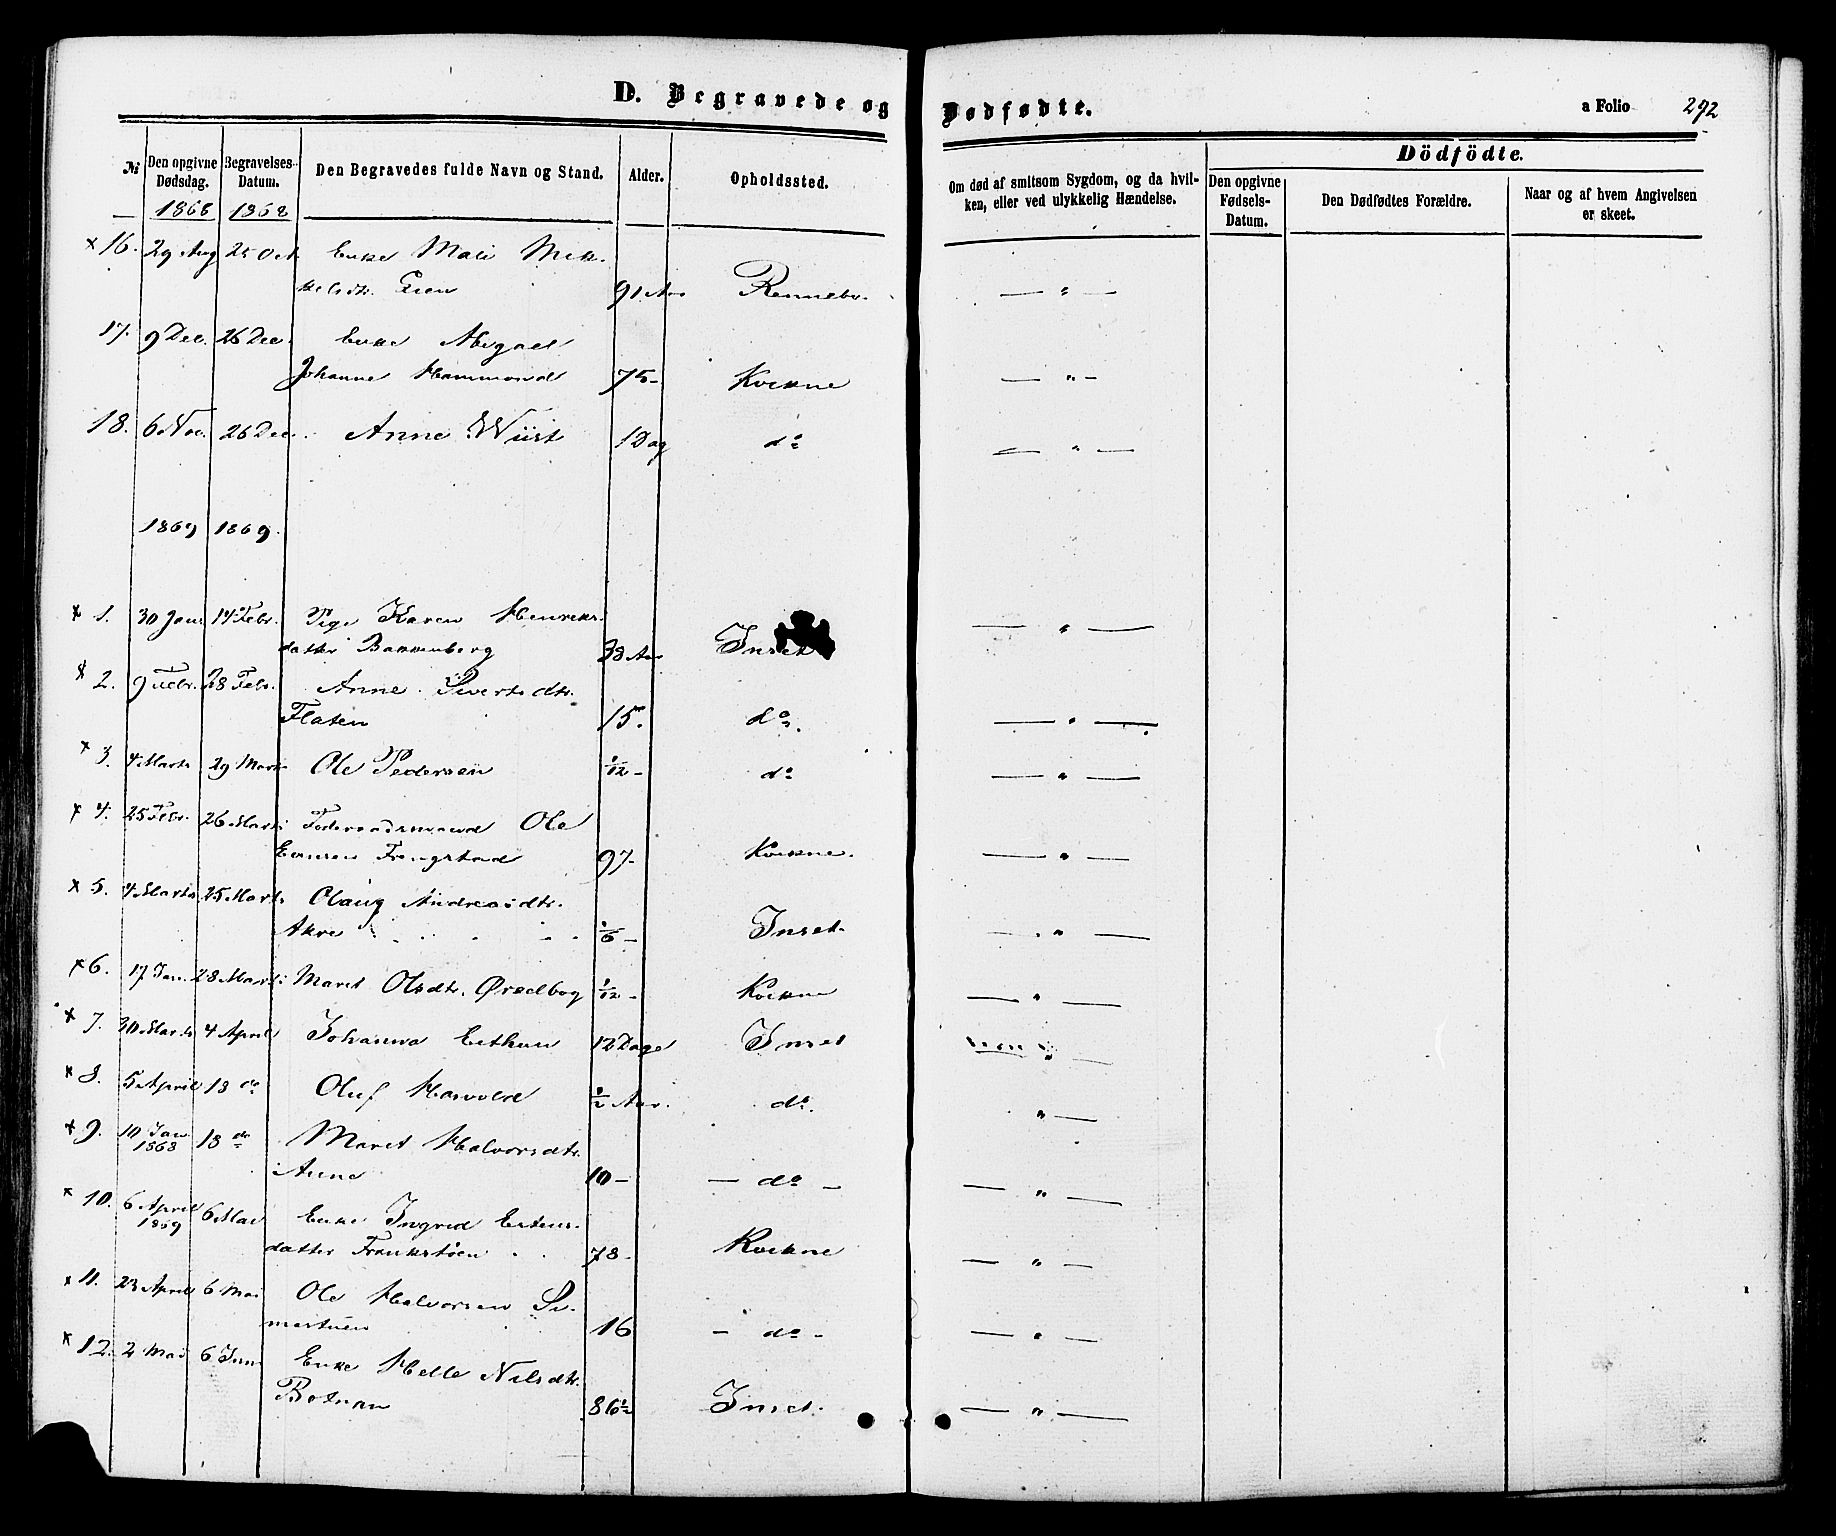 D. Begravede og Dødfødte.
a Folio 292
№
Den opgivne Dødsdag.
Begravelses-Datum.
Den Begravedes fulde Navn og Stand.
Alder.
Opholdssted.
Om død af smitsom Sygdom, og da hvilken, eller ved ulykkelig Hændelse.
Dödfödte.
Den opgivne Fødsels-Datum.
Den Dødfødtes Forældre.
Naar og af hvem Angivelsen er skeet.
1868 1868
× 16. 29 Aug 25 Oct Enke Mali Mik-
kelsdtr. 91 Aar Rennebo. — " —
17. 9 Dec. 26 Dec. Enke Abigael
Johanne Hammond 75- Kvikne — " —
18. 6 Nov. 26 Dec. Anne Wiist 1 Dag do — " —
1869 1869
× 1. 30 Jan 14 Febr. Pige Karen Henriks-
datter Bakkenberg 38 Aar Inset — " —
× 2. 9 Febr. 28 Febr. Anne Sivertsdtr.
Flaten 15. do. — " —
× 3. 4 Marts 29 Marts Ole Pedersen 1/12 - do — " —
× 4. 25 Febr. 26 Marts Føderaadsmand Ole
Estensen Frengstad 97- Kvikne. — " —
× 5. 4 Marts 25 Marts Olaug Andreasdtr.
Akre 1/6 - Inset. — " —
× 6. 17 Jan. 28 Marts Marit Olsdtr. 1/12 - Kvikne — " —
× 7. 30 Marts 4 April Johanna 12 Dage Inset
× 8. 5 April 18 do Oluf 1/2 Aar. do. " —
× 9. 10 Jan 1868 18 do Marit Halvorsdtr.
10 - — do — — " —
× 10. 6 April 1869 6 Mai Enke Ingrid Estens-
datter 78- Kvikne — " —
× 11. 23 April 6 Mai Ole Halvorsen
16 — do - — " —
× 12. 2 Mai 6 Juni Enke Helle Nilsdtr.
Botnan 86 1/2 Inset. — " —